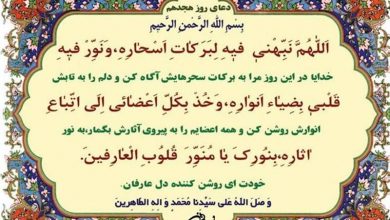 دعای روز هجدهم
بِسْمِ اللهِ الرَّحْمنِ الرَّحیمِ
اَللّهُمَّ نَبِّهْنی فیهِ لِبَرَکاتِ اَسْحارِهِ، وَنَوِّرْ فیهِ
خدایا در این روز مرا به برکات سحرهایش آگاه کن و دلم را به تابش
قَلْبی بِضِیاءِ اَنْوارِهِ، وَخُذْ بِکُلِّ اَعْضائی اِلَی اتِّباعِ
انوارش روشن کن و همه اعضایم را به پیروی آثارش بگمار، به نور
اثارِهِ، بِنُورِکَ یا مُنَوِّرَ قُلُوبِ الْعارِفینَ.
خودت ای روشن کننده دل عارفان.
وَ صَلَّ اللهُ عَلی سَیِّدِنا مُحَمَّد وَ الِهِ الطّاهِرینَ